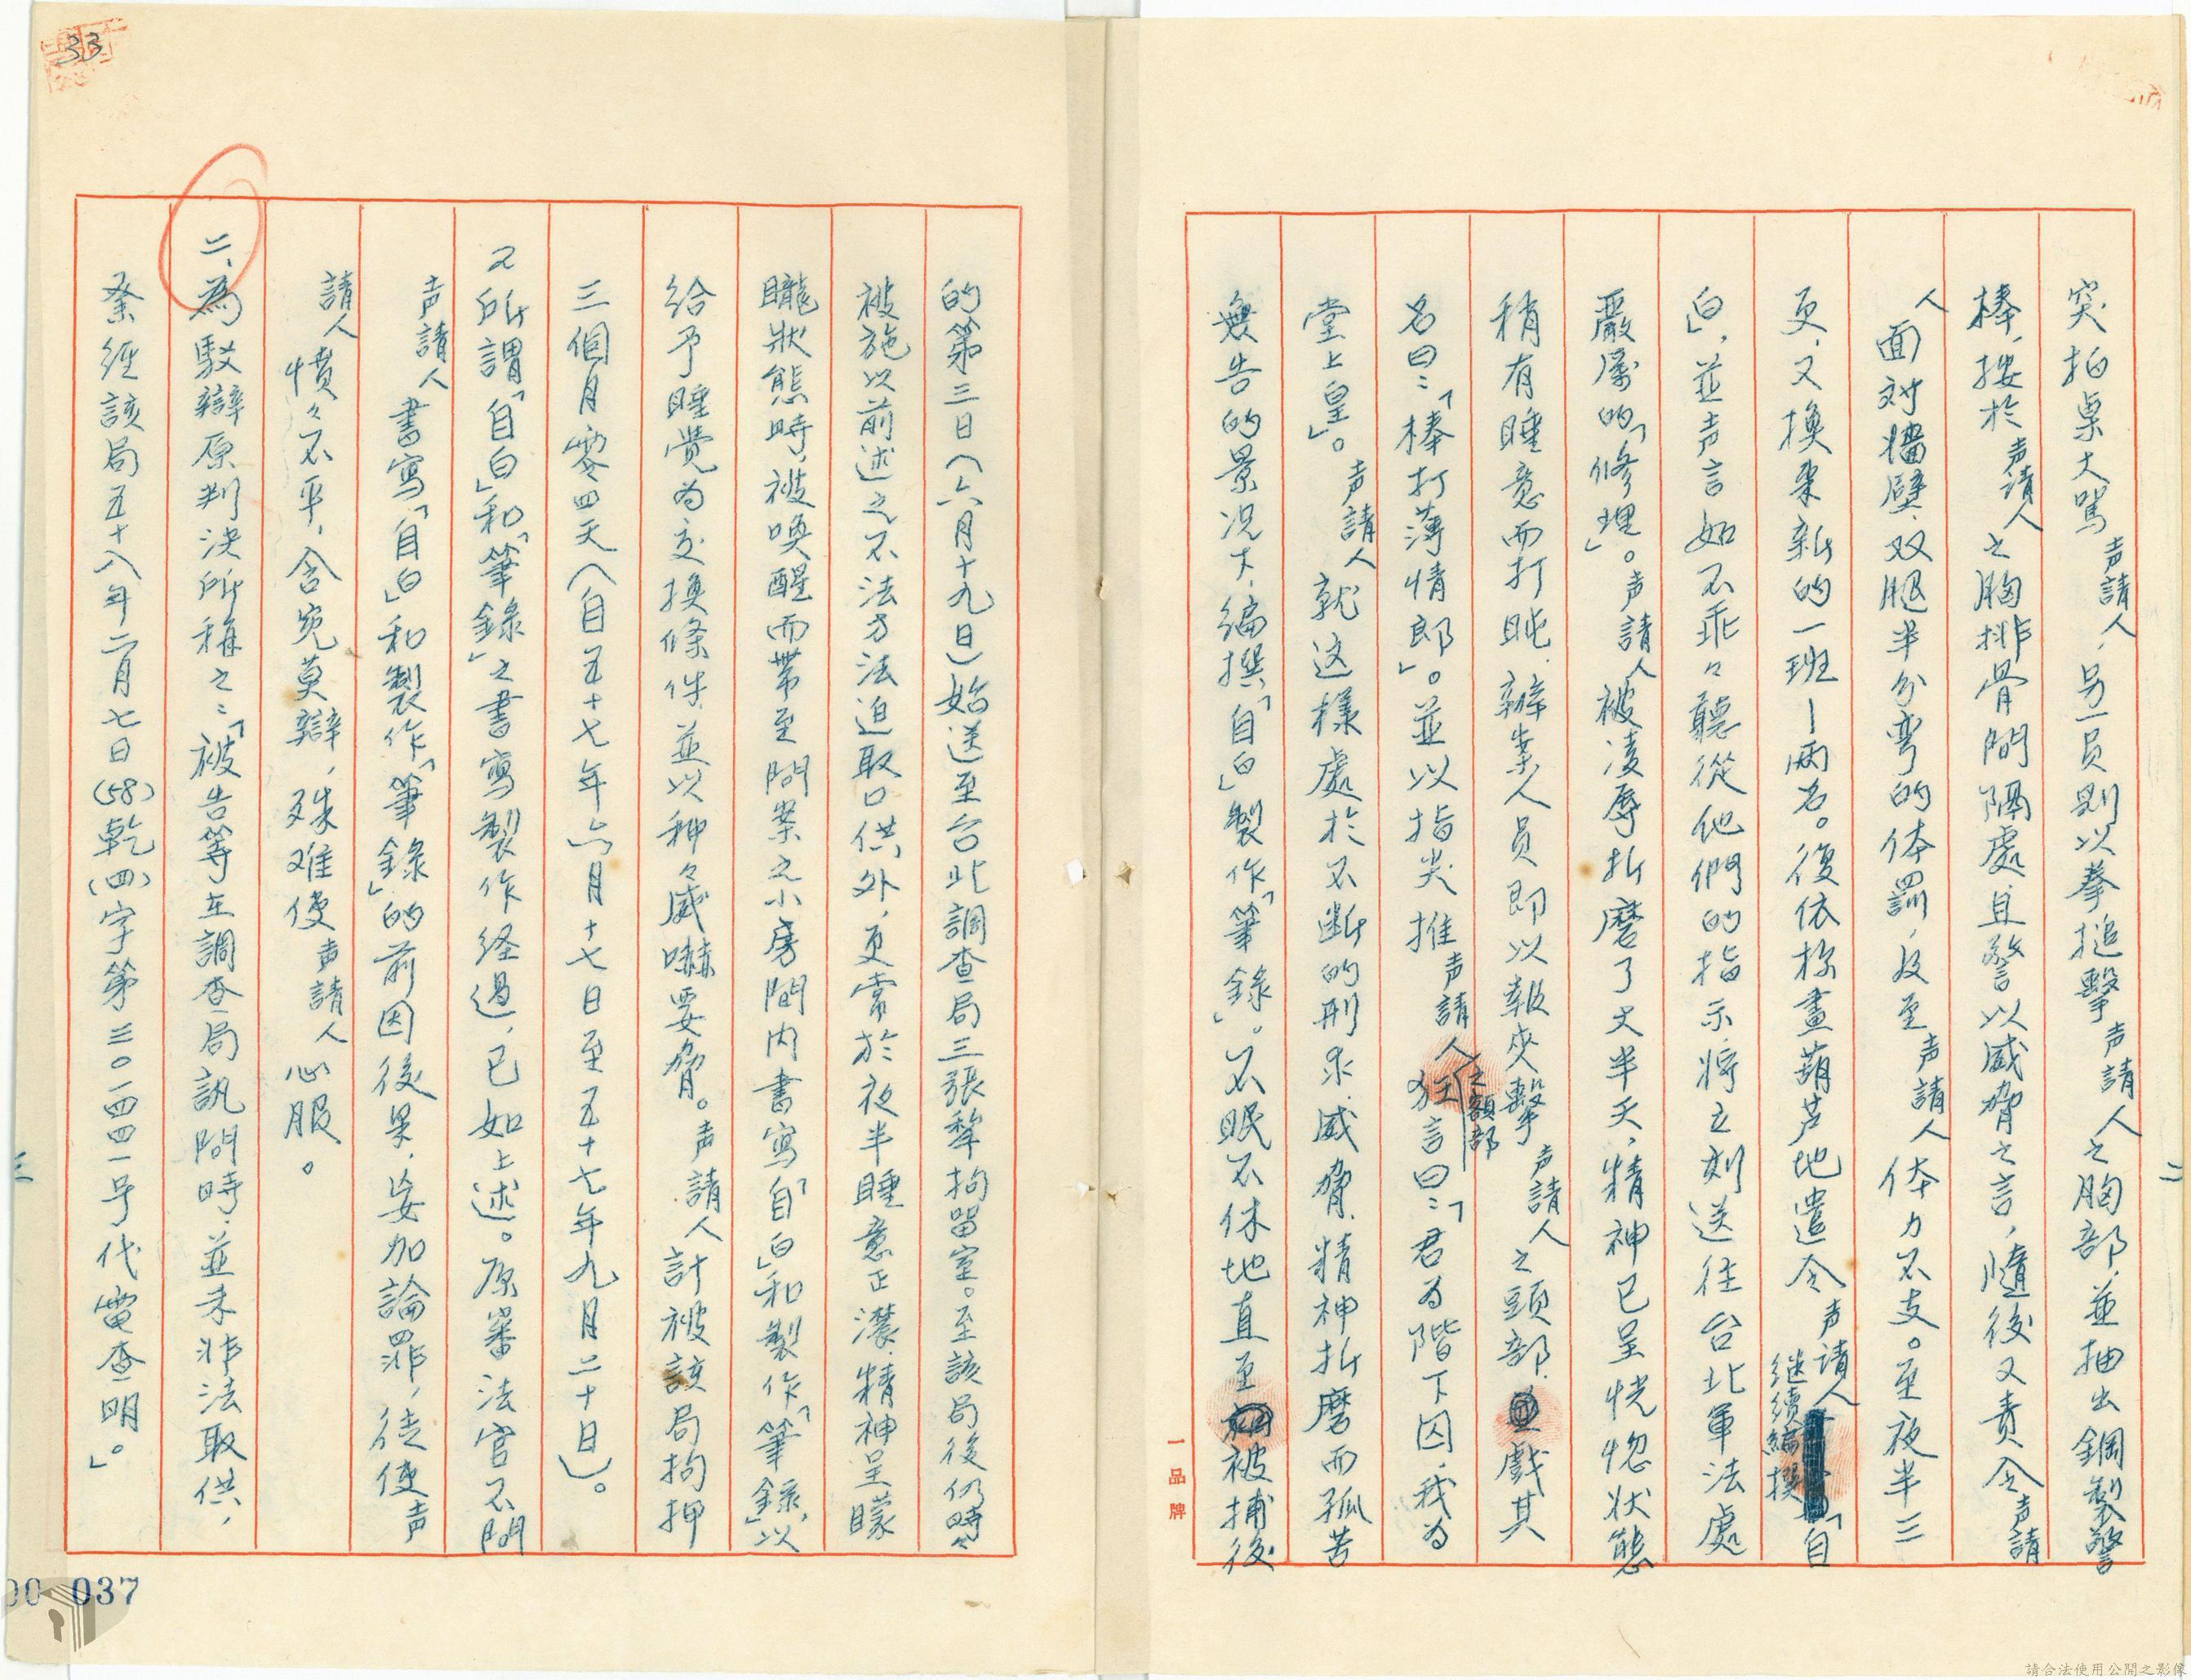 二
突拍桌大罵声請人，另一员則以拳搥擊声請人之胸部，並抽出鋼製警
棒，按於声請人之胸排骨間隔處，且警以威脅之言，隨後又責令声請
人面对牆壁，双腿半分彎的体罰，及至声請人体力不支。至夜半三
更，又換來新的一班—兩名。復依樣畫葫芦地遣令声请人继續編撰「自
白」，並声言如不乖々聽從他們的指示將立刻送往台北軍法處
嚴厲的「修理」。声請人被凌辱折磨了大半天，精神已呈恍惚状態
稍有睡意而打盹，辦案人員即以報夾擊声請人之頭部，戲其
名曰：「棒打薄情郎」。並以指尖推声請人之額部狂言曰：「君为階下囚，我为
堂上皇」。声請人就这樣處於不断的刑求，威脅，精神折磨而孤苦
無告的景况下，編撰「自白」製作「筆錄」。不眠不休地直至被捕後
一品牌
的第三日（六月十九日）始送至台北調查局三張犂拘留室。至該局後仍時々
被施以前述之不法方法迫取口供外，更常於夜半睡意正濃，精神呈矇
矓狀態時，被喚醒而帶至問案之小房間內書寫「自白」和製作「筆錄」，以
給予睡覺为交換條件，並以种々威嚇要脅。声請人計被該局拘押
三個月零四天（自五十七年六月十七日至五十七年九月二十日）。
又所謂「自白」和「筆錄」之書寫製作经過，已如上述。原審法官不問
声請人書寫「自白」和製作「筆錄」的前因後果，妄加論罪，徒使声
請人憤々不平，含冤莫辯，殊难使声請人心服。
二、為駁辯原判決所稱之：「被告等在調查局訊問時，並未非法取供，
案经該局五十八年二月七日(58)乾(四)字第三〇一四四一号代電查明。」
三
33
00 037
請合法使用公開之影像